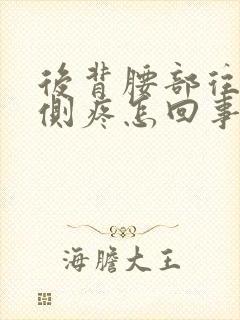 後背腰部往
側疼怎回事
海膽大王